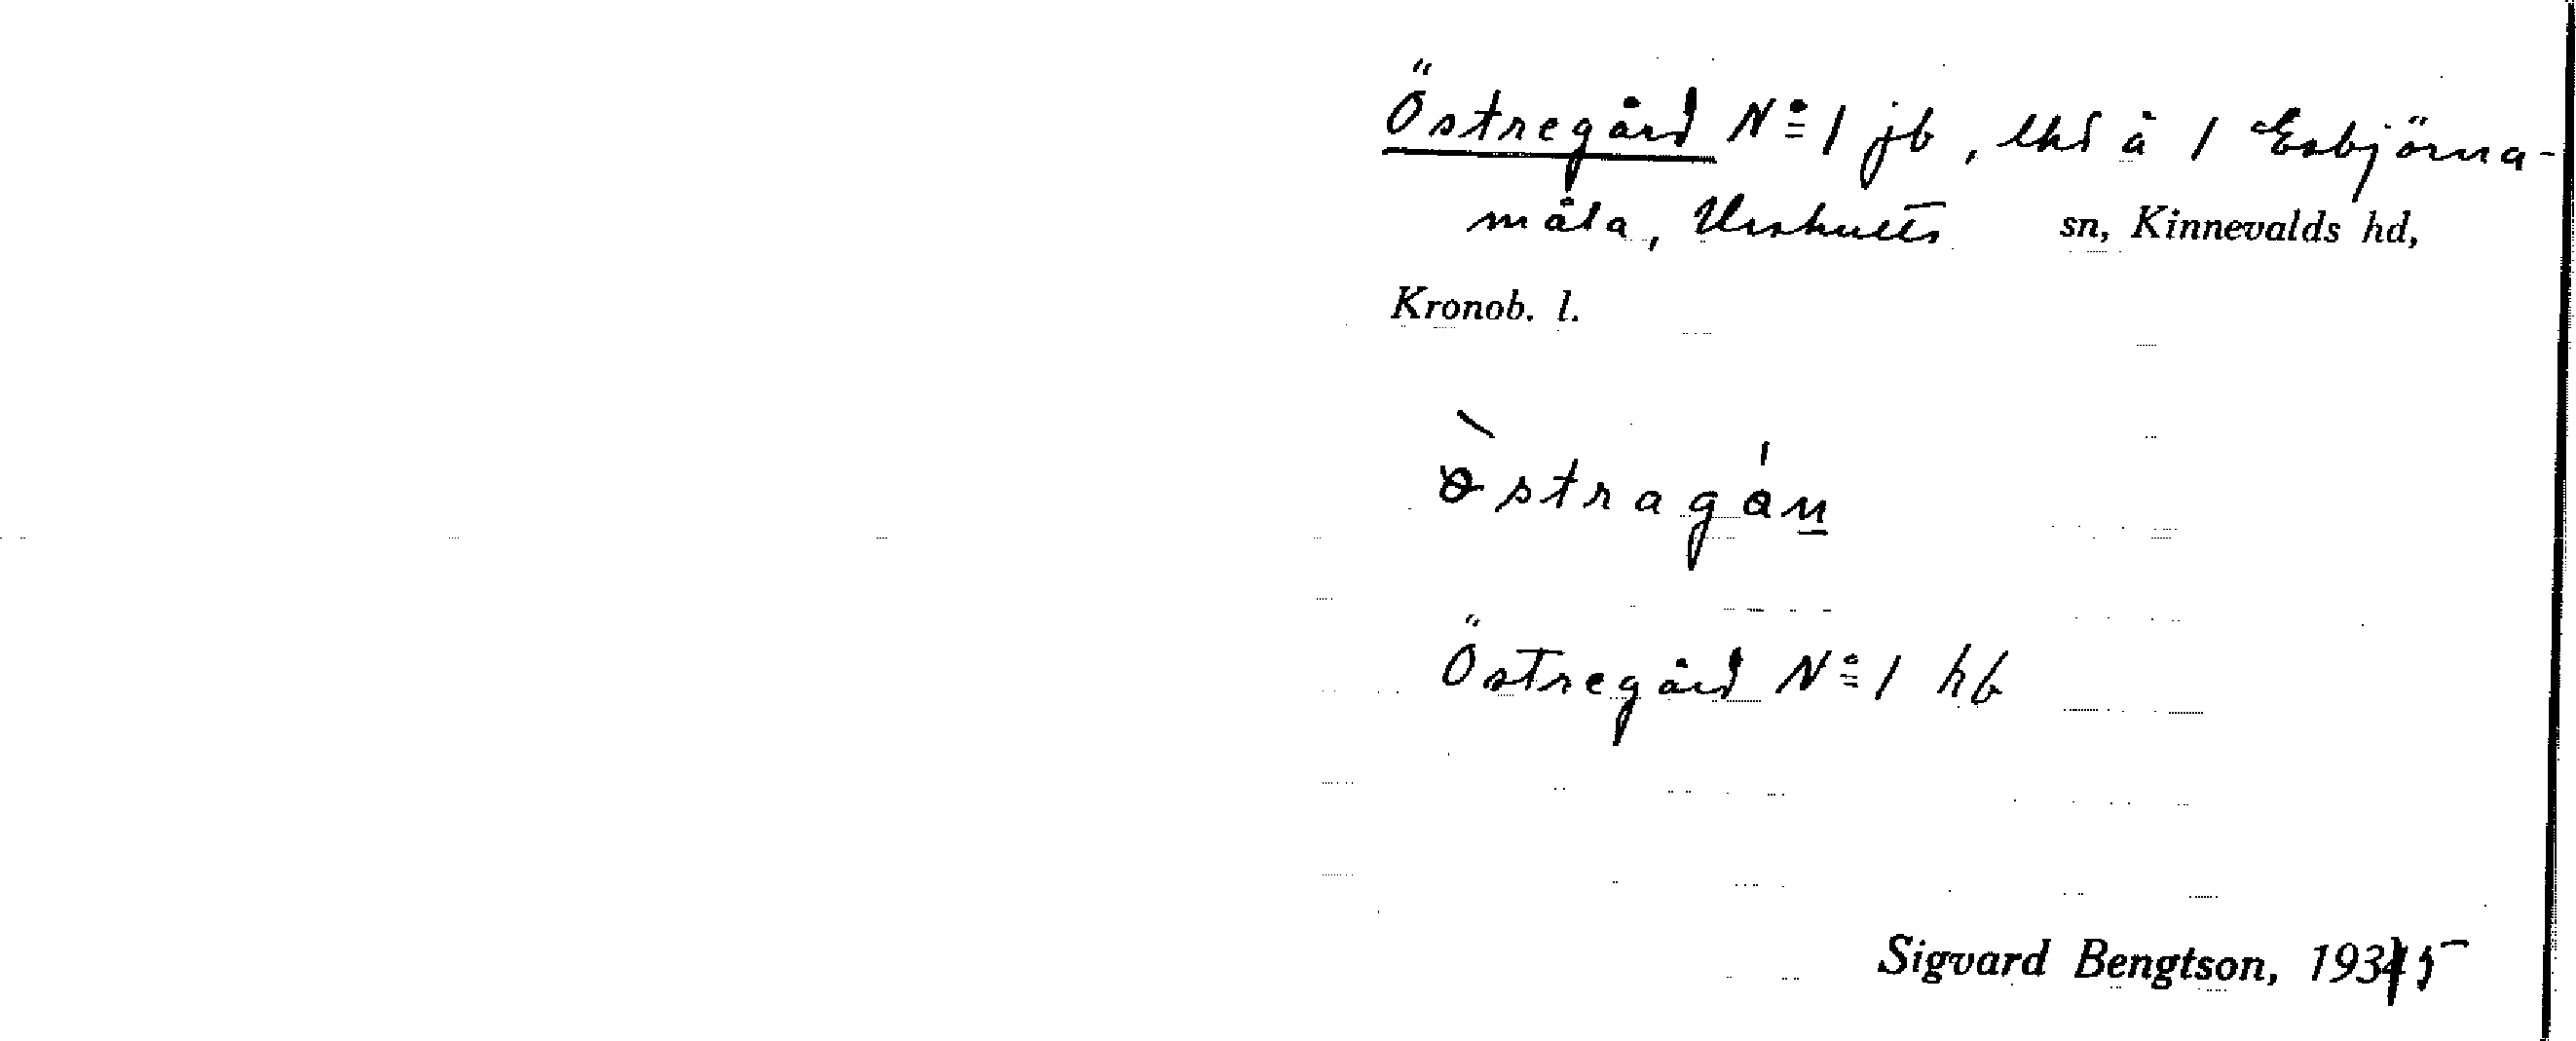 Östregård Nº 1 jb, lhd å 1 Esbjörna-
måla, Urshults sn, Kinnevalds hd,
Kronob. l.
östragån
Östregård Nº 1 hb
Sigvard Bengtson, 1935